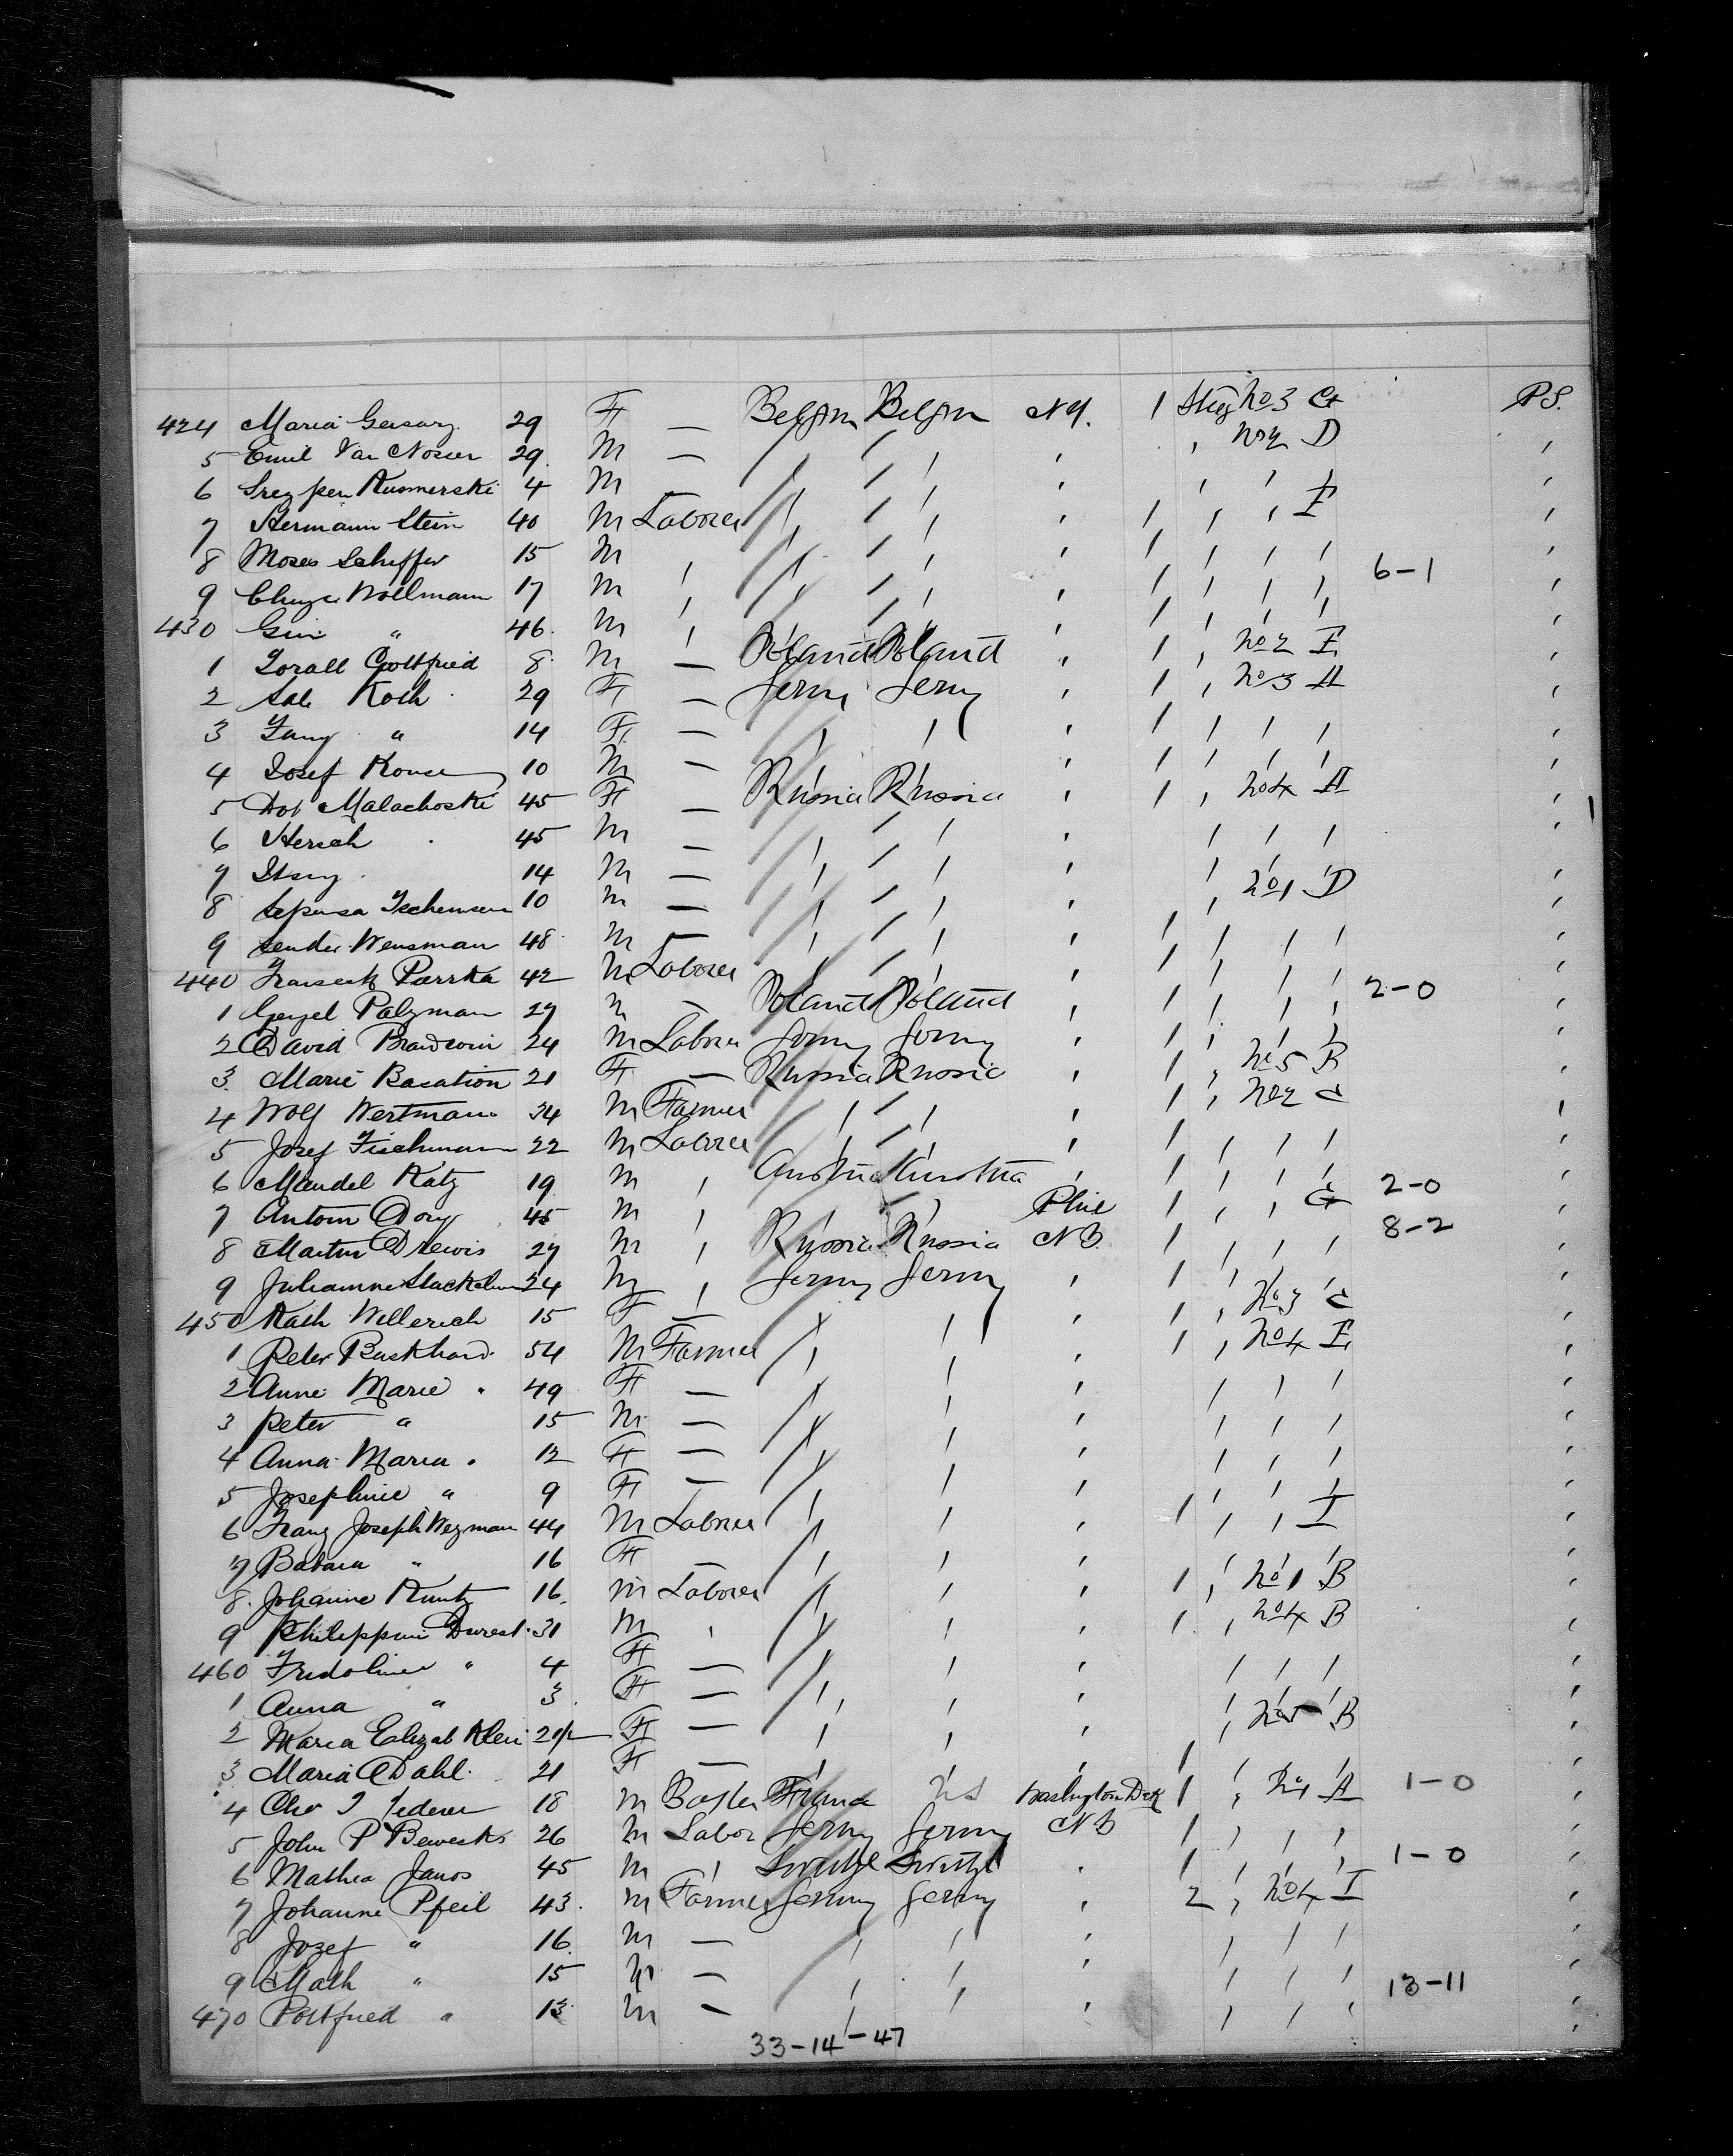 424 Maria Gersary 29 F — Belgm Belgm N.Y. 1 Steg No 3 G P.S.
5 Emil Van Nosser 29 M — " " " " No 2 D "
6 Kusmerski 4 M — " " " " " " "
7 Hermann Stein 40 M Laborer " " " 1 " " E "
8 Moses Scheffer 15 M " " " " 1 " " " "
9 Wollmann 17 M " " " " 1 " " " 6-1 "
430 " 46 M " " " " 1 " " " "
1 Gottfried 8 M — Poland Poland " 1 " No 2 E "
2 Koch 29 F — Germy Germy " 1 " No 3 A "
3 Fany " 14 F — " " " 1 " " " "
4 Josef 10 M — " " " 1 " " " "
5 Malachoski 45 F — Russia Russia " 1 " No 4 A "
6 Hersch " 45 M — " " " " " " "
7 " 14 M — " " " " " " "
8 10 M — " " " " No 1 D "
9 Wensman 48 M — " " " 1 " " " "
440 Parrka 42 M Laborer " " " 1 " " " "
1 Palzman 27 M — Poland Poland " 1 " " " 2-0 "
2 David 24 M Labore Germy Germy " 1 " " " "
3 Marie Basation 21 F — Russia Russia " 1 " No 5 B "
4 Wolf Wertmann 34 M Farmer " " " 1 " No 2 C "
5 Josef Fischmann 22 M Laborer " " " 1 " " " "
6 Mandel Katz 19 M " Austria Austria " 1 " " " 2-0 "
7 Antoin Dory 45 M " " " Phil 1 " " G 8-2 "
8 Martin Drewis 27 M " Russia Russia 1 " " " "
9 24 M " Germy Germy " 1 " " " "
450 Kath Willerich 15 F — " " " 1 " No 3 C "
1 Peter Burkhard 54 M Farmer " " " 1 " No 4 E "
2 Anne Marie " 49 F — " " " " " " "
3 Peter " 15 M — " " " " " " "
4 Anna Maria " 12 F — " " " " " " "
5 Josephine " 9 F — " " " " " " "
6 Franz Joseph Wegman 44 M Laborer " " " 1 " " I "
7 Babara " 16 F — " " " " " " "
8 Johanne Kuntz 16 M Laborer " " " 1 " No 1 B "
9 Philippine Durest 31 M " " " " 1 " No 4 B "
460 Fridoline " 4 F — " " " " " " "
1 Anna " 3 F — " " " " " " "
2 Maria Elizab Klein F — " " " " No 5 B "
3 Maria Dahl 21 F — " " " 1 " " " "
4 Federer 18 M France U S Washington 1 " No 1 A 1-0 "
5 John P 26 M Labor Germy Germy 1 " " " "
6 Mathea Janos 45 M " " 1 " " " 1-0 "
7 Johanne Pfeil 43 M Farmer Germy Germy " 2 " No 4 I "
8 Jozef " 16 M — " " " " " " "
9 Math " 15 M — " " " " " " "
470 " 13 M — " " " " " " 13-11 "
33-14-47